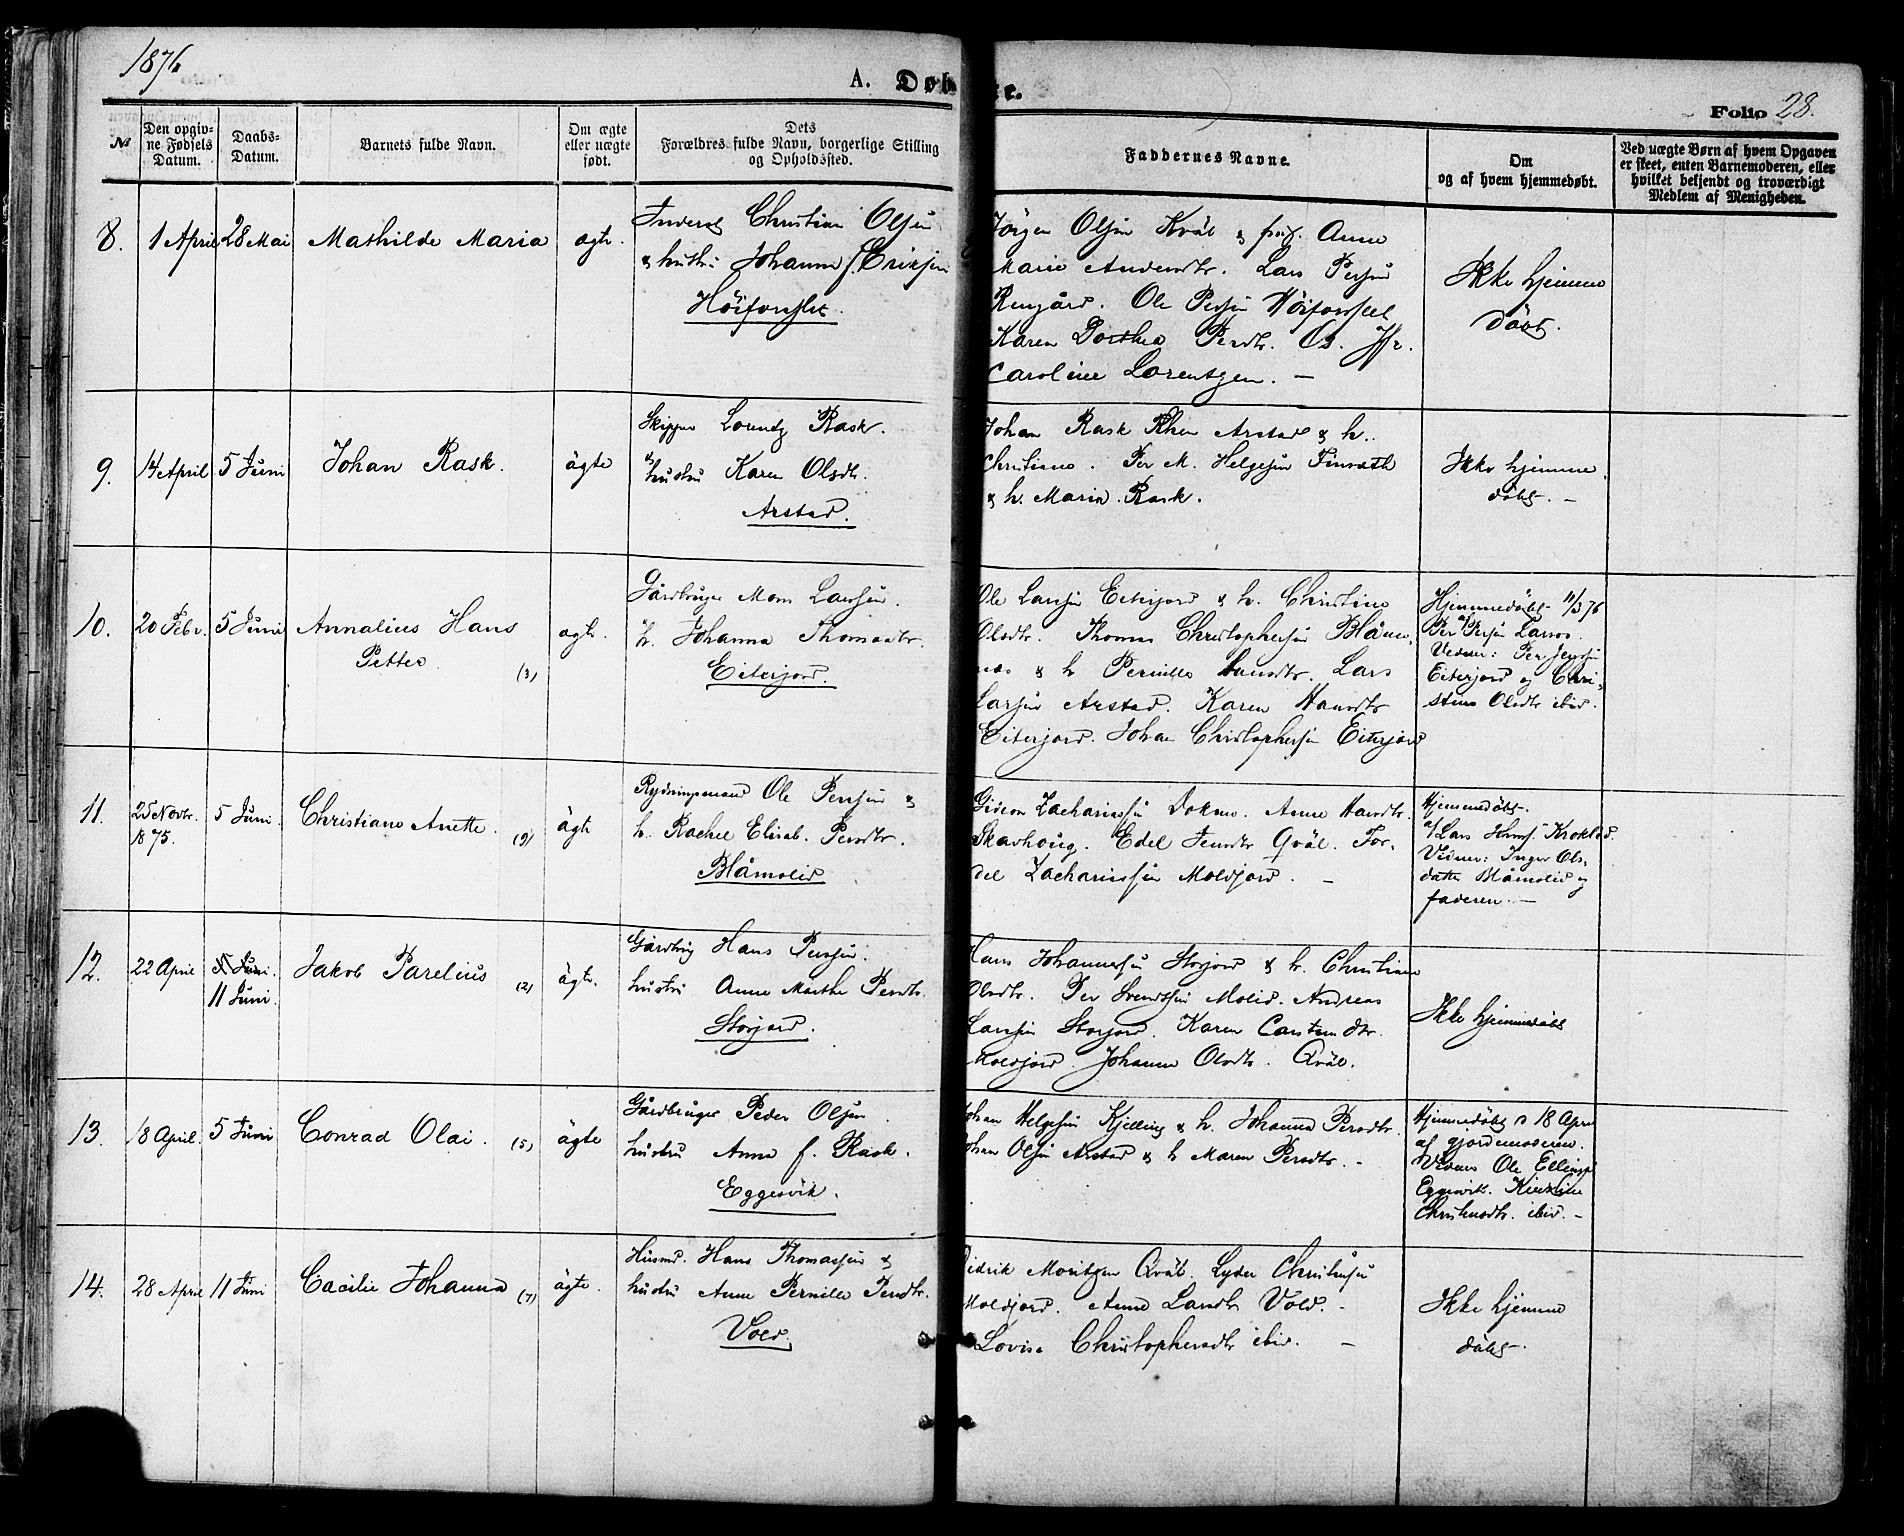 1876
A. Døbte.
Folio 28.
№
Den opgiv-
ne Fødsels
Datum.
Daabs-
Datum.
Barnets fulde Navn.
Om ægte
eller uægte
født.
Dets
Forældres fulde Navn, borgerlige Stilling
og Opholdssted.
Faddernes Navne.
Om
og af hvem hjemmedøbt.
Ved uægte Børn af hvem Opgaven
er skeet, enten Barnemoderen, eller
hvilket bekjendt og troværdigt
Medlem af Menigheden.
8. 1 April 28 Mai Mathilde Maria ægte.
Christian Olsen
& hustru Johanna f. Eriksen
Höiforslet.
Jörgen Olsen Kvål & Anne
Marie Andersdtr. Lars Persen
Ole Persen Höiforslet
Karen Dorthea Persdtr. Os. Jfr.
Caroline Lorentzen. —
Ikke hjemme
döbt.
9. 14 April 5 Juni Johan Rask. ägte
Skipper Lorentz Rask.
& hustru Karen Olsdtr.
Arstad.
Johan Rask Arstad & h.
Christiane. Per M. Helgesen
& h. Maria Rask.
Ikke hjemme
döbt. —
10. 20 Febr. 5 Juni Annalius Hans
Petter. (3) ægte.
Gårdbruger Mons Larsen.
h. Johanna Thomasdtr.
Eiterjord.
Ole Larsen Eiterjord & h. Christine
Olsdtr. Thomas Christophersen Blåmo-
& h. Pernille Hansdtr. Lars
Larsen Arstad. Karen Hansdtr
Eiterjord. Johan Christophersen Eiterjord
Hjemmedöbt 11/3 76
af Per Persen Larsos.
Vidner: Per Jensen
Eiterjord og Chri-
stene Olsdtr ibid.
11. 25 Novbr. 5 Juni. Christiane Anette. (9) ägte
1875.
Rydningsmand Ole Persen &
h. Rachel Elisab. Persdtr.
Blåmolid
Gideon Zachariassen Dokmo. Anne Hansdtr.
Skavhoug. Edel Jensdtr Qvål. For-
del Zachariassen Moldjord. —
Hjemmedöbt.
af Lars Hans.
Vidner: Inger Ols-
datter Blåmolid og
faderen. —
12. 22 April 5 Juni. Jakob Parelius (2) ägte.
11 Juni.
Gårdbrug Hans Persen.
hustru Anne Marthe Persdtr.
Storjord.
Hans Johannessen Storjord & h. Christiane
Olsdtr. Per Svendsen Molid. Andreas
Larsen Storjord. Karen Carstensdtr.
Moldjord. Johanna Olsdtr. Qvål.
Ikke hjemmedöbt
13. 18 April. 5 Juni Conrad Olai. (5) ägte
Gårdbruger Peder Olsen
hustru Anna f. Rask.
Eggesvik.
Johan Helgesen Kjelling & h. Johanna Persdtr.
Johan Olsen Arstad & h Maren Persdtr. —
Hjemmedöbt d 18 April
af gjordemoderen.
Vidner Ole Ellings
Eggesvik.
Christensdtr. ibid. —
14. 28 April 11 Juni Cæcilie Johanna (7) ägte.
Husmd. Hans Thomassen &
hustru Anne Pernille Persdtr.
Vold.
Didrik Moritzen Qvål. Lyder Christensen
Moldjord. Anne Larsdtr Vold. —
Lovise Christophersdtr ibid. —
Ikke hjemme
döbt.